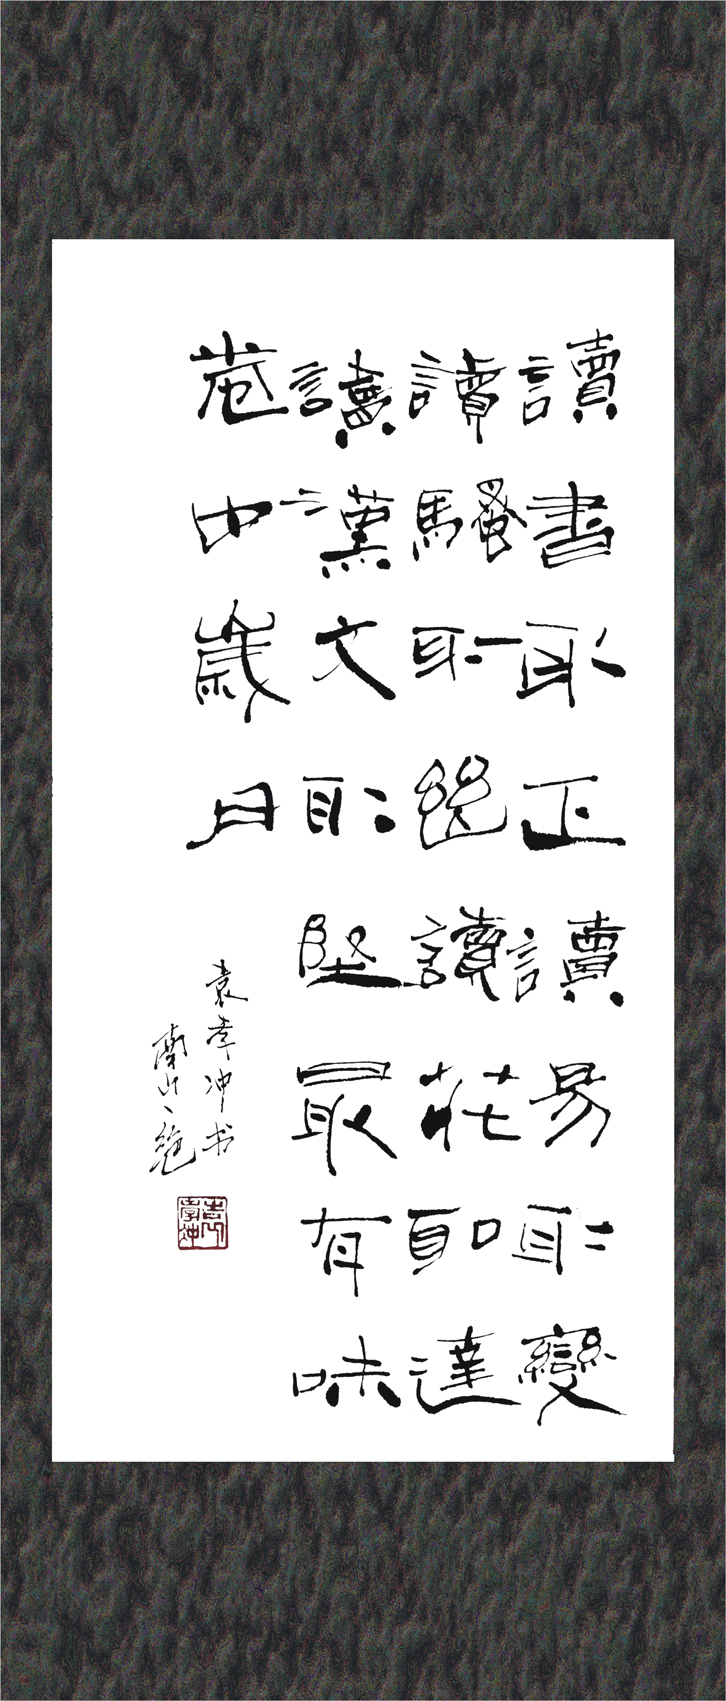 讀書取正讀易取變
讀騷取幽讀莊取達
讀漢文取堅最有味
卷中歲月
袁孝冲书